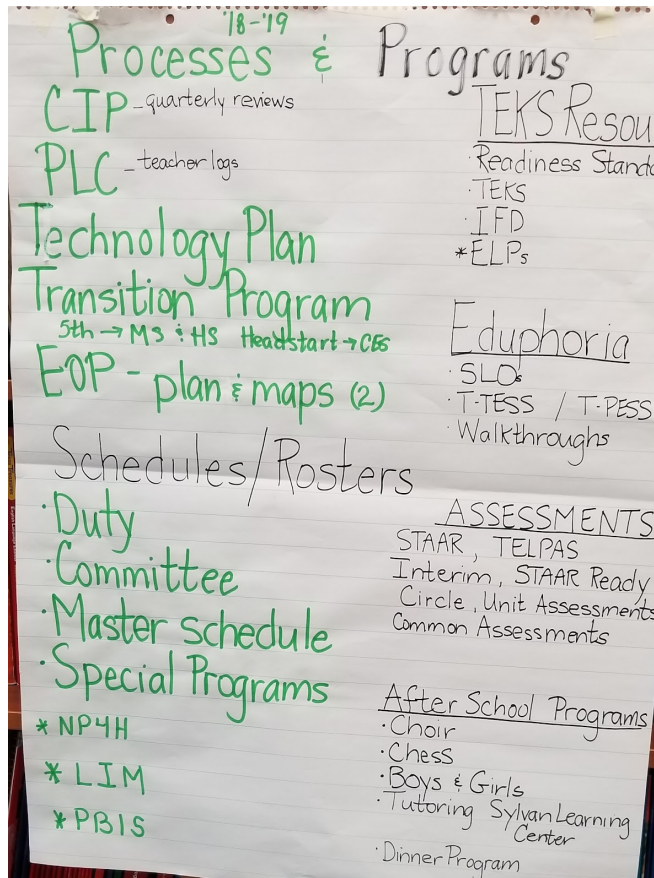 '18-'19
Processes & Programs
CIP - quarterly reviews
PLC - teacher logs
Technology Plan
Transition Program
5th → MS & HS Headstart → CES
EOP - plan & maps (2)
Schedules/Rosters
· Duty
· Committee
· Master schedule
· Special Programs
* NP4H
* LIM
* PBIS
TEKS Resou
· Readiness Standa
· TEKS
· IFD
* ELPs
Eduphoria
· SLOs
· T-TESS / T-PESS
· Walkthroughs
ASSESSMENTS
STAAR, TELPAS
Interim, STAAR Ready
Circle, Unit Assessments
Common Assessments
After School Programs
· Choir
· Chess
· Boys & Girls
· Tutoring Sylvan Learning
Center
· Dinner Program